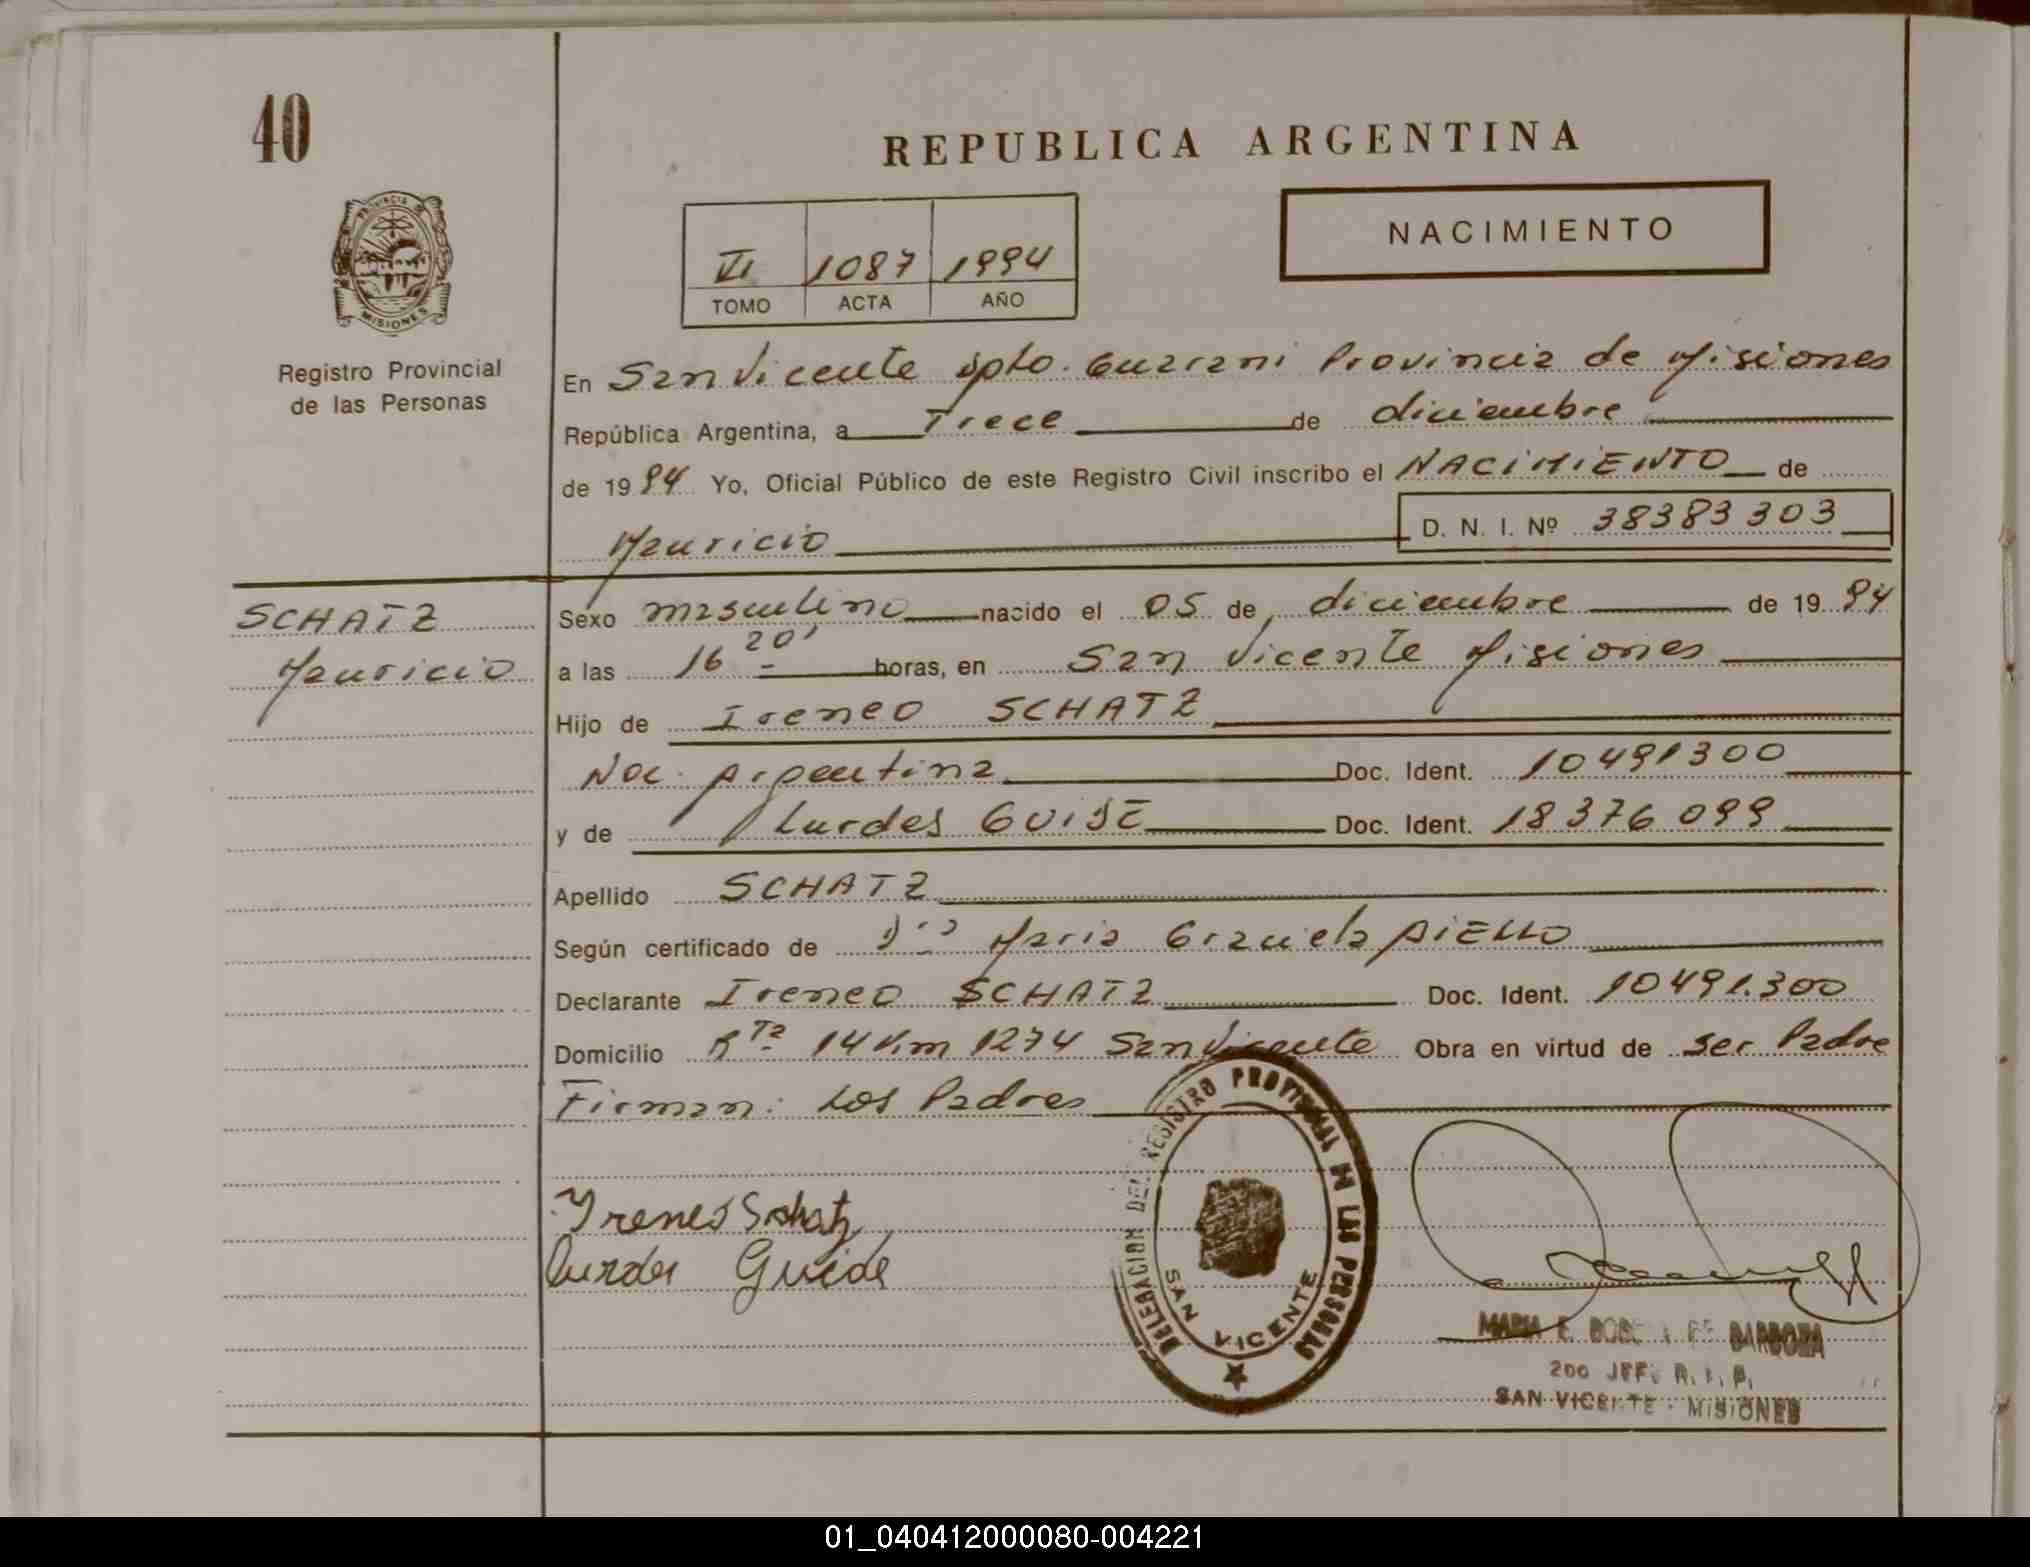 40
REPUBLICA ARGENTINA
NACIMIENTO
VI 1087 1994
TOMO ACTA AÑO
PROVINCIA DE
MISIONES
Registro Provincial
de las Personas
En San Vicente Dpto. Guarani Provincia de Misiones
República Argentina, a Trece de diciembre
de 1994 Yo, Oficial Público de este Registro Civil inscribo el NACIMIENTO de
Mauricio D. N. I. Nº 38383303
SCHATZ
Mauricio
Sexo masculino nacido el 05 de diciembre de 1994
a las 16 20' horas, en San Vicente Misiones
Hijo de Ireneo SCHATZ
Nac. Argentina Doc. Ident. 10491300
y de Lurdes GUISE Doc. Ident. 18376099
Apellido SCHATZ
Según certificado de Maria Graciela AIELLO
Declarante Ireneo SCHATZ Doc. Ident. 10491.300
Domicilio Rta 14 Km 1274 San Vicente Obra en virtud de ser Padre
Firman: Los Padres
Ireneo Schatz
Lurdes
DELEGACION DEL REGISTRO PROVINCIAL DE LAS PERSONAS
SAN VICENTE
MARIA E. DE BARBOZA
2do JEFE R. P.
SAN VICENTE - MISIONES
01_040412000080-004221